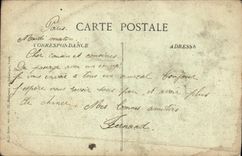 Paris.
CARTE POSTALE
Mardi matin.
CORRESPONDANCE
ADRESSE
Cher cousin et cousines
De passage avec un
je vous envoie à tous un amical bonjour
J'espère vous bientôt et avoir plus
de chance. Mes bonnes amitiés
Fernand.